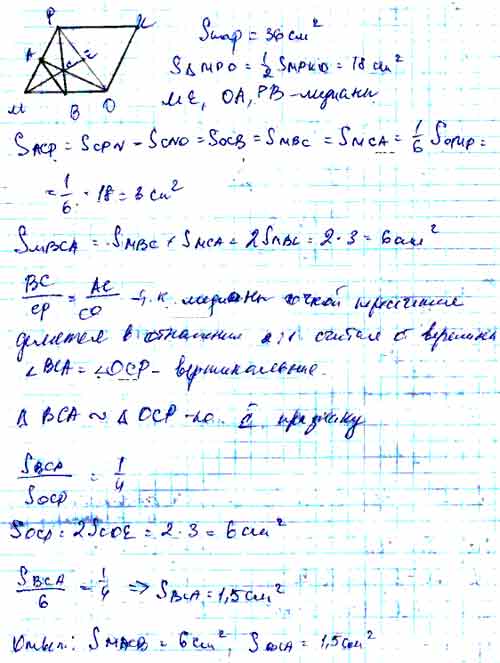 P K
A C E
M B O
Sпар = 36 см²
S△MPO = 1/2 SMPKO = 18 см²
ME, OA, PB - медианы
SACP = SCPN - SCNO = SOCB = SMBC = SMCA = 1/6 SOMP =
= 1/6 · 18 = 3 см²
SMBCA = SMBC + SMCA = 2SMBC = 2·3 = 6 см²
BC/CP = AC/CO т.к медианы точкой пересечения
делятся в отношении 2:1 считая от вершины
∠BCA = ∠OCP - вертикальные.
△ BCA ∾ △ OCP - по признаку
SBCA/SOCP = 1/4
SOCP = 2SCOE = 2·3 = 6 см²
SBCA/6 = 1/4 => SBCA = 1,5 см²
Ответ: SMACB = 6 см², SBCA = 1,5 см²